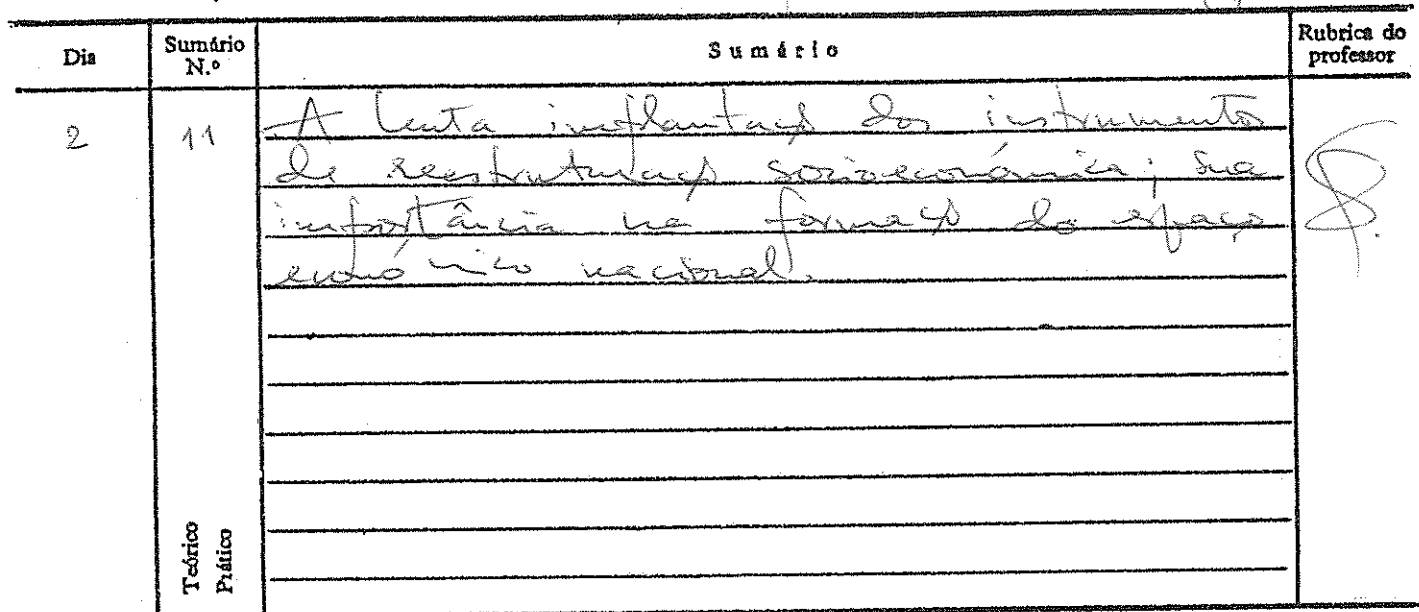 Dia Sumário N.º Sumário Rubrica do professor
2 11 A lenta implantação dos instrumentos
de reestruturação socioeconómica; sua
importância na formação do espaço
económico nacional.
Teórico
Prático